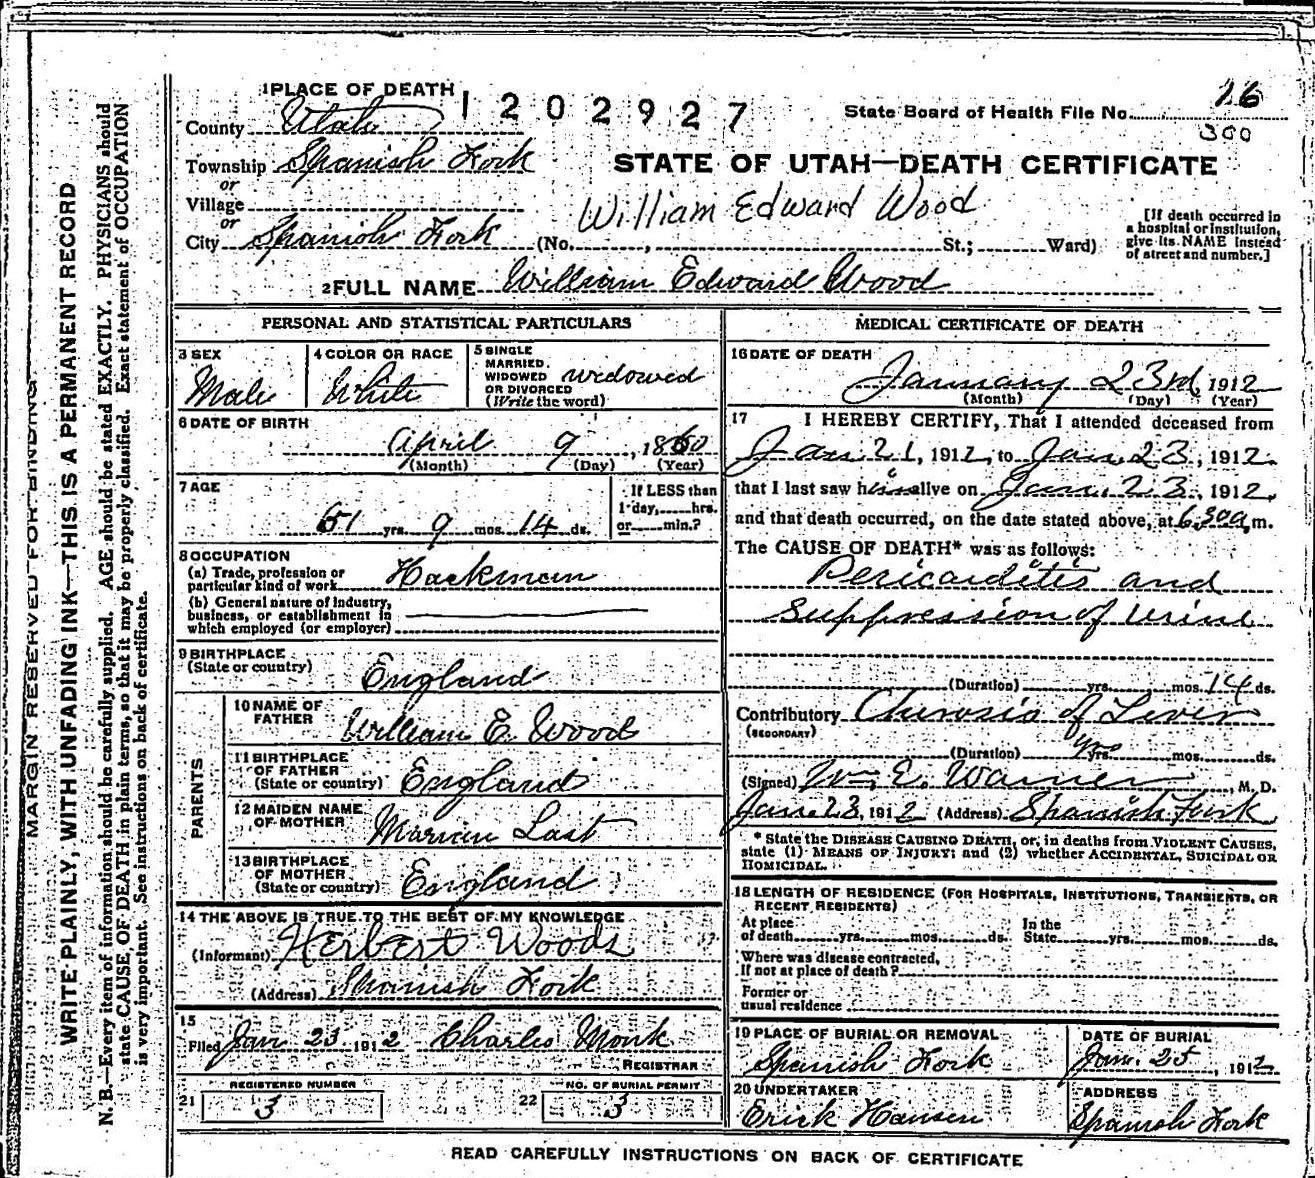 1 PLACE OF DEATH
1202927
State Board of Health File No. 16
300
County Utah
Township Spanish Fork
or
Village
or
City Spanish Fork (No. , St.; Ward)
STATE OF UTAH—DEATH CERTIFICATE
William Edward Wood
[If death occurred in a hospital or institution, give its NAME instead of street and number.]
2 FULL NAME William Edward Wood
PERSONAL AND STATISTICAL PARTICULARS
3 SEX
Male
4 COLOR OR RACE
White
5 SINGLE
MARRIED.
WIDOWED
OR DIVORCED
(Write the word)
widowed
6 DATE OF BIRTH
April 9, 1860
(Month) (Day) (Year)
7 AGE
51 yrs. 9 mos. 14 ds.
If LESS than
1 day, hrs.
or min.?
8 OCCUPATION
(a) Trade, profession or
particular kind of work Hackman
(b) General nature of industry,
business, or establishment in
which employed (or employer)
9 BIRTHPLACE
(State or country)
England
PARENTS
10 NAME OF
FATHER
William E. Wood
11 BIRTHPLACE
OF FATHER
(State or country)
England
12 MAIDEN NAME
OF MOTHER
Last
13 BIRTHPLACE
OF MOTHER
(State or country)
England
14 THE ABOVE IS TRUE TO THE BEST OF MY KNOWLEDGE
(Informant) Herbert Woods
(Address) Spanish Fork
15
Filed Jan 23 1912 Charles Monk
REGISTRAR
REGISTERED NUMBER
21 3
NO. OF BURIAL PERMIT
22 3
MEDICAL CERTIFICATE OF DEATH
16 DATE OF DEATH
January 23rd 1912
(Month) (Day) (Year)
17 I HEREBY CERTIFY, That I attended deceased from
Jan 21, 1912, to Jan 23, 1912.
that I last saw him alive on Jan. 23, 1912,
and that death occurred, on the date stated above, at 6.30a m.
The CAUSE OF DEATH* was as follows:
Pericarditis and
suppression of urine
(Duration) yrs. mos. 14 ds.
Contributory Chirosis of Liver
(SECONDARY)
(Duration) yrs mos. ds.
(Signed) Wm. E. Warner, M. D.
Jan 23, 1912 (Address) Spanish Fork
* State the DISEASE CAUSING DEATH, or, in deaths from VIOLENT CAUSES,
state (1) MEANS OF INJURY; and (2) whether ACCIDENTAL, SUICIDAL OR
HOMICIDAL.
18 LENGTH OF RESIDENCE (FOR HOSPITALS, INSTITUTIONS, TRANSIENTS, OR
RECENT RESIDENTS)
At place
of death yrs. mos. ds.
In the
State yrs. mos. ds.
Where was disease contracted,
If not at place of death?
Former or
usual residence
19 PLACE OF BURIAL OR REMOVAL
Spanish Fork
DATE OF BURIAL
Jan. 25, 1912
20 UNDERTAKER
Erick Hansen
ADDRESS
Spanish Fork
READ CAREFULLY INSTRUCTIONS ON BACK OF CERTIFICATE
MARGIN RESERVED FOR BINDING
WRITE PLAINLY, WITH UNFADING INK—THIS IS A PERMANENT RECORD
N. B.—Every item of information should be carefully supplied. AGE should be stated EXACTLY. PHYSICIANS should
state CAUSE OF DEATH in plain terms, so that it may be properly classified. Exact statement of OCCUPATION
is very important. See instructions on back of certificate.